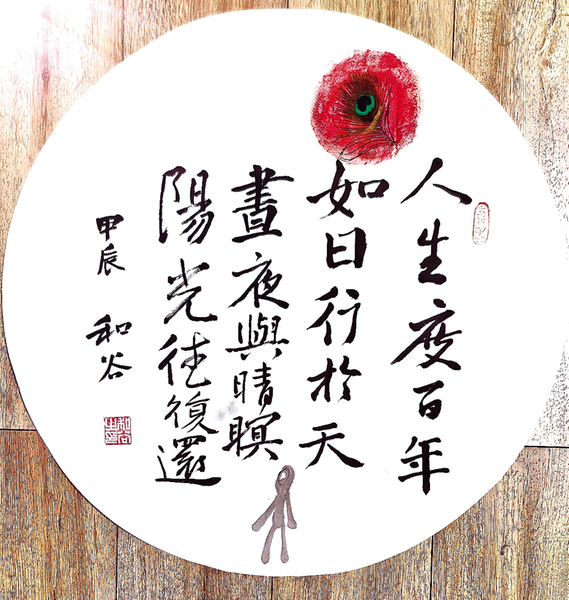 人生度百年
如日行於天
晝夜與晴暝
陽光往復還
甲辰 和谷